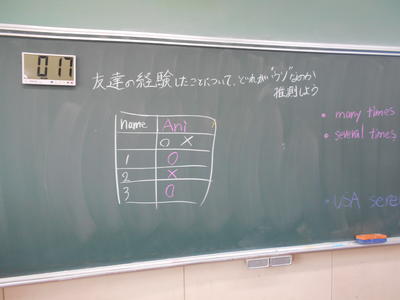 017
友達の経験したことについて、どれが"ウソ"なのか
推測しよう
name Ani
O X
1 O
2 X
3 O
• many times
• several times
• USA